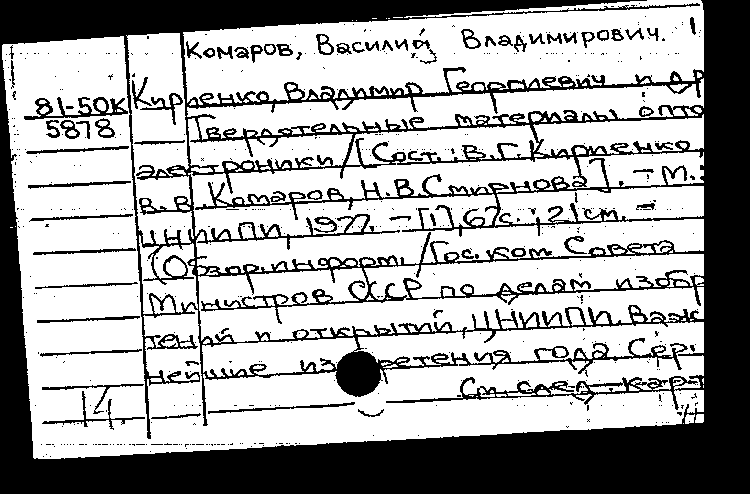 Комаров, Василий Владимирович. 1
81-50К Кириенко, Владимир Георгиевич и др
5878 Твердотельные материалы опто
электроники / [Сост.: В.Г. Кириенко,
В.В. Комаров, Н.В. Смирнова]. - М.:
ЦНИИПИ, 1977. - [1], 67с. ; 21 см. -
(Обзор. информ. / Гос. ком. Совета
Министров СССР по делам изобр
тений и открытий, ЦНИИПИ. Важ
нейшие из ретения года. Сер.
См. след. карт
14.